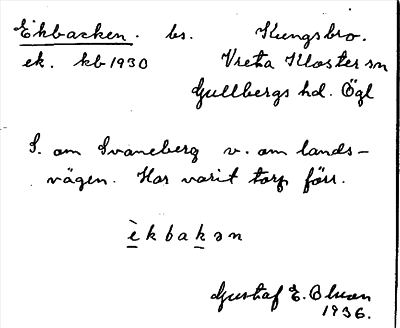 Ekbacken. bs. Kungsbro.
ek. kb 1930 Vreta Kloster sn
Gullbergs hd. Ögl
S. om Svaneberg v. om lands-
vägen. Har varit torp förr.
èkbakən
Gustaf E. Bluan
1936.